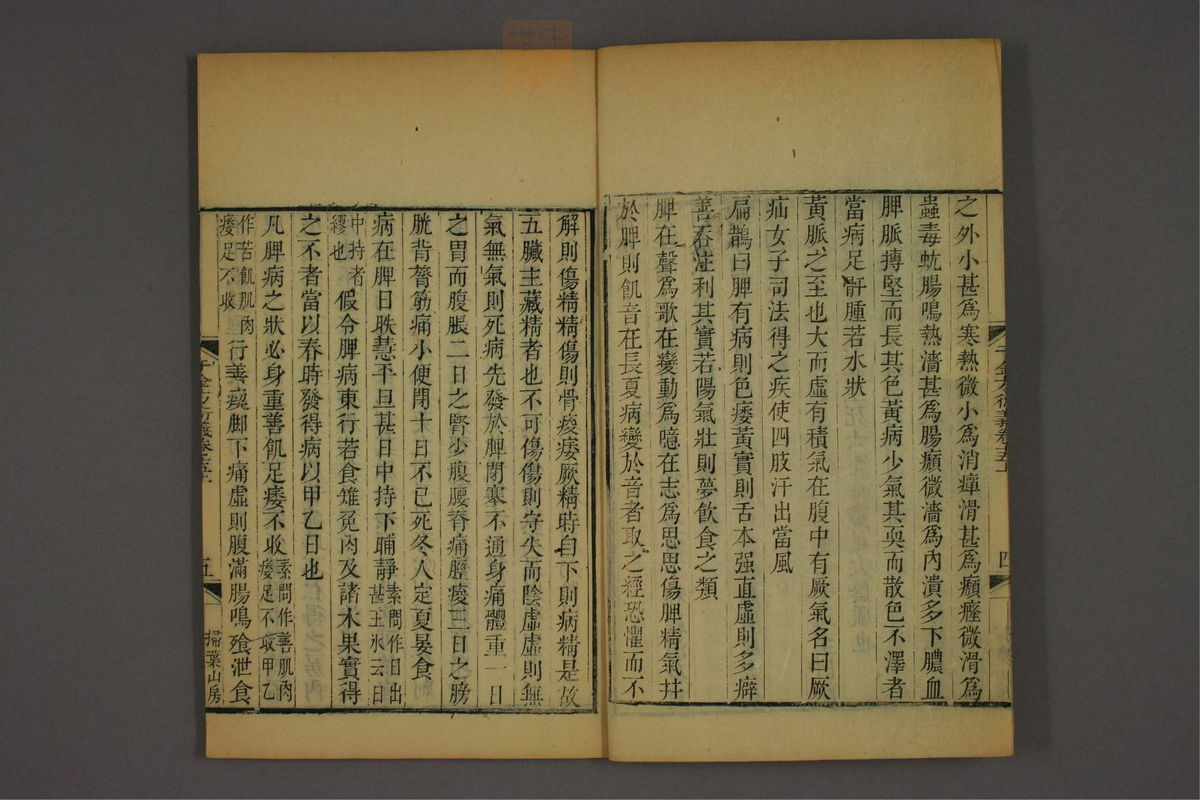 之外小甚爲寒熱微小爲消癉滑甚爲癩癃微滑爲
蟲毒蚘腸鳴熱濇甚爲腸癩微濇爲內潰多下膿血
脾脈搏堅而長其色黃病少氣其耎而散色不澤者
當病足䯒腫若水狀
黃脈之至也大而虛有積氣在腹中有厥氣名曰厥
疝女子司法得之疾使四肢汗出當風
扁鵲曰脾有病則色痿黃實則舌本强直虛則多癖
善吞注利其實若陽氣壯則夢飲食之類
脾在聲爲歌在變動爲噫在志爲思思傷脾精氣并
於脾則飢音在長夏病變於音者取之經恐懼而不
千金方衍義卷十五上
四
解則傷精精傷則骨痠痿厥精時自下則病精是故
五臟主藏精者也不可傷傷則守失而陰虛虛則無
氣無氣則死病先發於脾閉塞不通身痛體重一日
之胃而腹脹二日之腎少腹腰脊痛脛痠三日之膀
胱背膂筋痛小便閉十日不已死冬人定夏晏食
病在脾日昳慧平旦甚日中持下晡靜素問作日出甚王氷云日
中持者繆也假令脾病東行若食雉兔肉及諸木果實得
之不者當以春時發得病以甲乙日也
凡脾病之狀必身重善飢足痿不收素問作善肌肉痿足不收甲乙
作苦飢肌肉痿足不收行善瘈脚下痛虛則腹滿腸鳴飱泄食
千金方衍義卷十五上
五
掃葉山房